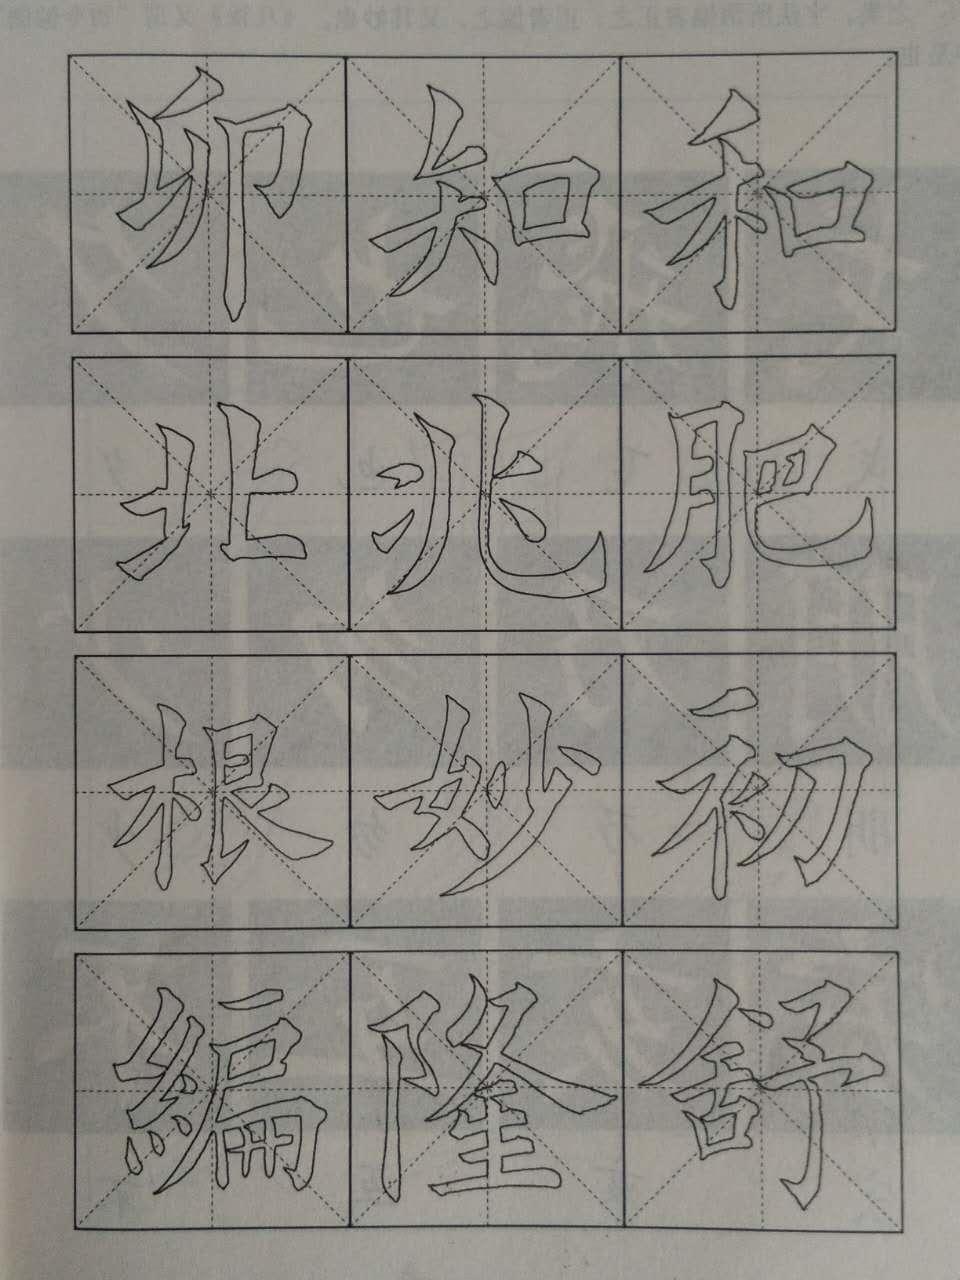 卯知和
北兆肥
根妙初
編隆舒